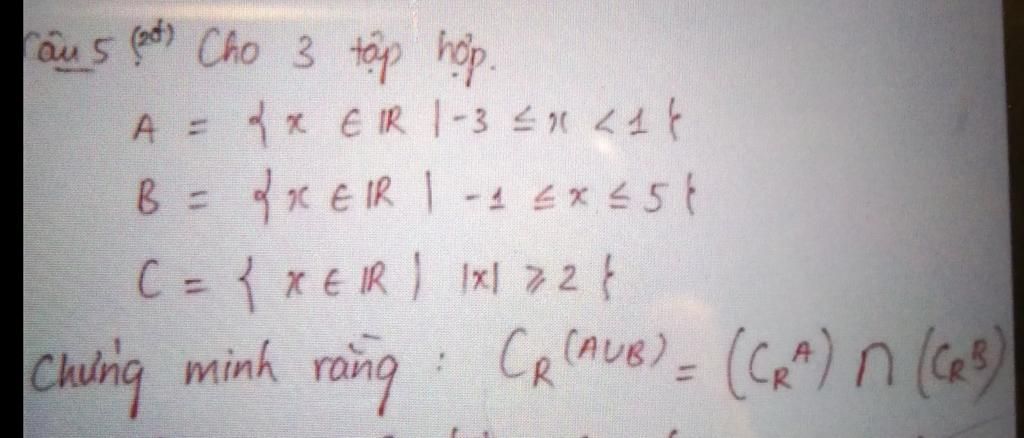 Câu 5 (2đ) Cho 3 tập hợp.
A = { x ∈ ℝ | -3 ≤ x < 1 }
B = { x ∈ ℝ | -1 ≤ x ≤ 5 }
C = { x ∈ ℝ | |x| ≥ 2 }
Chứng minh rằng : C_R(A∪B) = (C_R A) ∩ (C_R B)